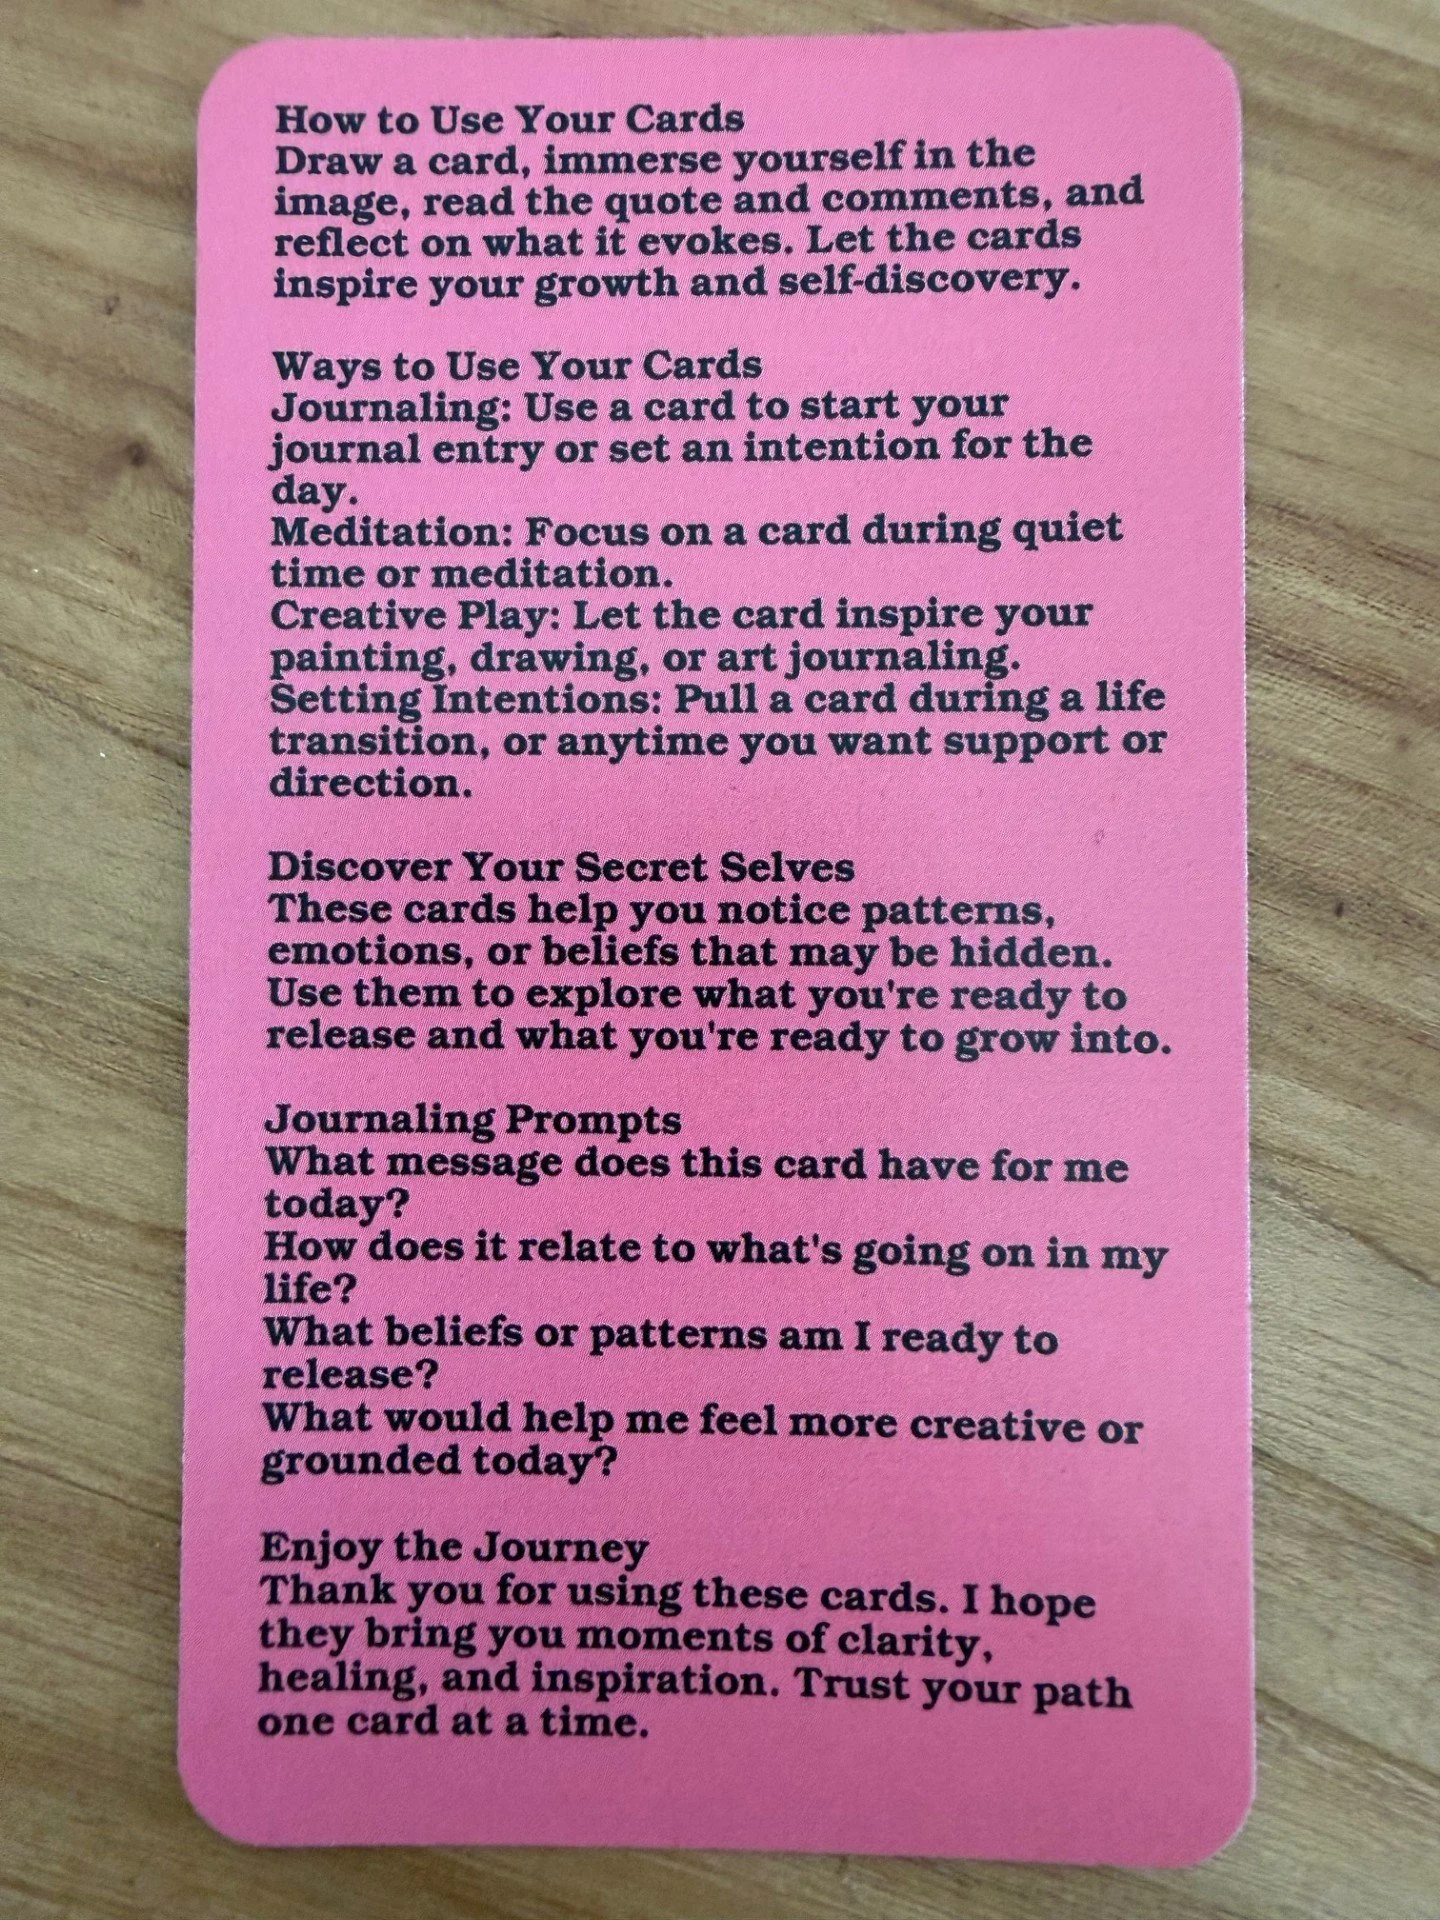 How to Use Your Cards
Draw a card, immerse yourself in the
image, read the quote and comments, and
reflect on what it evokes. Let the cards
inspire your growth and self-discovery.
Ways to Use Your Cards
Journaling: Use a card to start your
journal entry or set an intention for the
day.
Meditation: Focus on a card during quiet
time or meditation.
Creative Play: Let the card inspire your
painting, drawing, or art journaling.
Setting Intentions: Pull a card during a life
transition, or anytime you want support or
direction.
Discover Your Secret Selves
These cards help you notice patterns,
emotions, or beliefs that may be hidden.
Use them to explore what you're ready to
release and what you're ready to grow into.
Journaling Prompts
What message does this card have for me
today?
How does it relate to what's going on in my
life?
What beliefs or patterns am I ready to
release?
What would help me feel more creative or
grounded today?
Enjoy the Journey
Thank you for using these cards. I hope
they bring you moments of clarity,
healing, and inspiration. Trust your path
one card at a time.